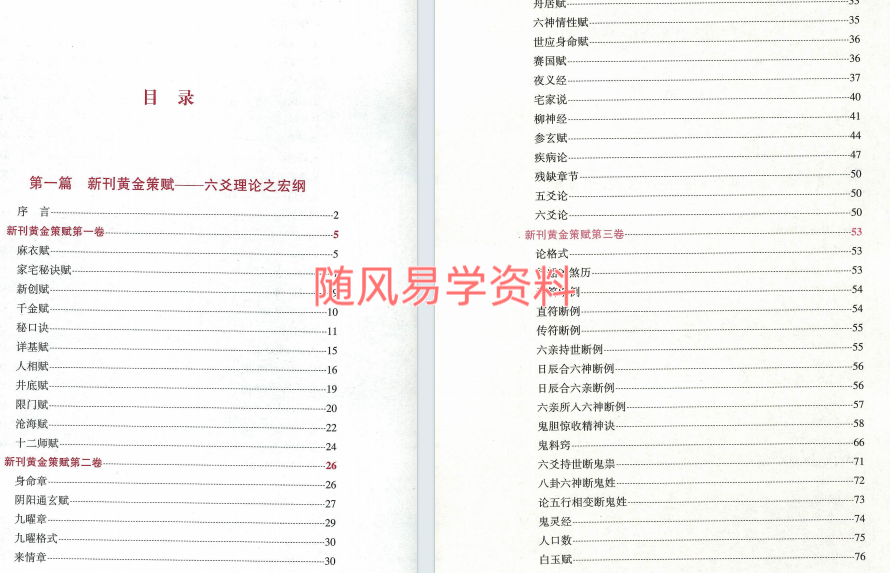 目 录
第一篇 新刊黄金策赋——六爻理论之宏纲
序 言 2
新刊黄金策赋第一卷 5
麻衣赋 5
家宅秘诀赋
新创赋
千金赋 10
秘口诀 11
详基赋 15
人相赋 16
井底赋 19
限门赋 20
沧海赋 22
十二师赋 24
新刊黄金策赋第二卷 26
身命章 26
阴阳通玄赋 27
九曜章 29
九曜格式 30
来情章 30
舟居赋 33
六神情性赋 35
世应身命赋 36
赛国赋 36
夜义经 37
宅家说 40
柳神经 41
参玄赋 44
疾病论 47
残缺章节 50
五爻论 50
六爻论 50
新刊黄金策赋第三卷 53
论格式 53
煞历 53
54
直符断例 54
传符断例 55
六亲持世断例 55
日辰合六神断例 56
日辰合六亲断例 56
六亲所入六神断例 57
鬼胆惊收精神诀 58
鬼料窍 66
六爻持世断鬼祟 71
八卦六神断鬼姓 72
论五行相变断鬼姓 73
鬼灵经 74
人口数 75
白玉赋 76
随风易学资料